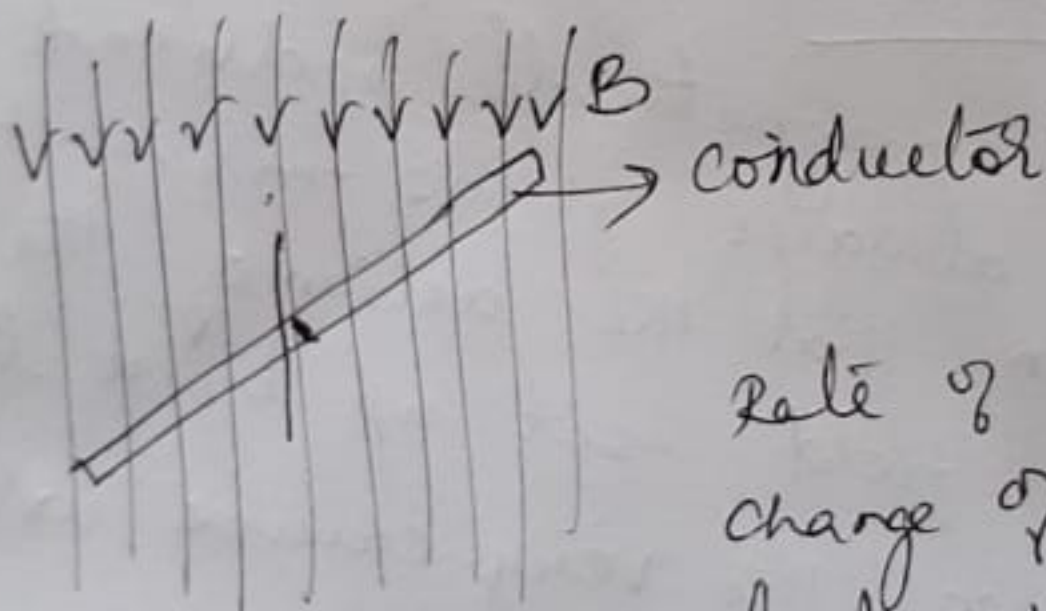 B
conductor
Rate of
change of